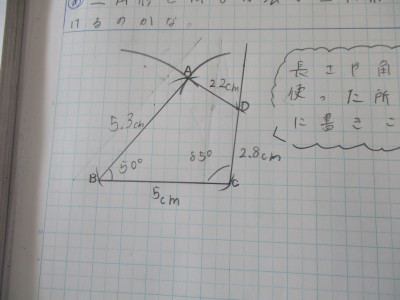 けるのかな。
A
2.2cm
D
5.3cm
長さや角
使った所
に書きこ
50°
85°
2.8cm
B
C
5cm